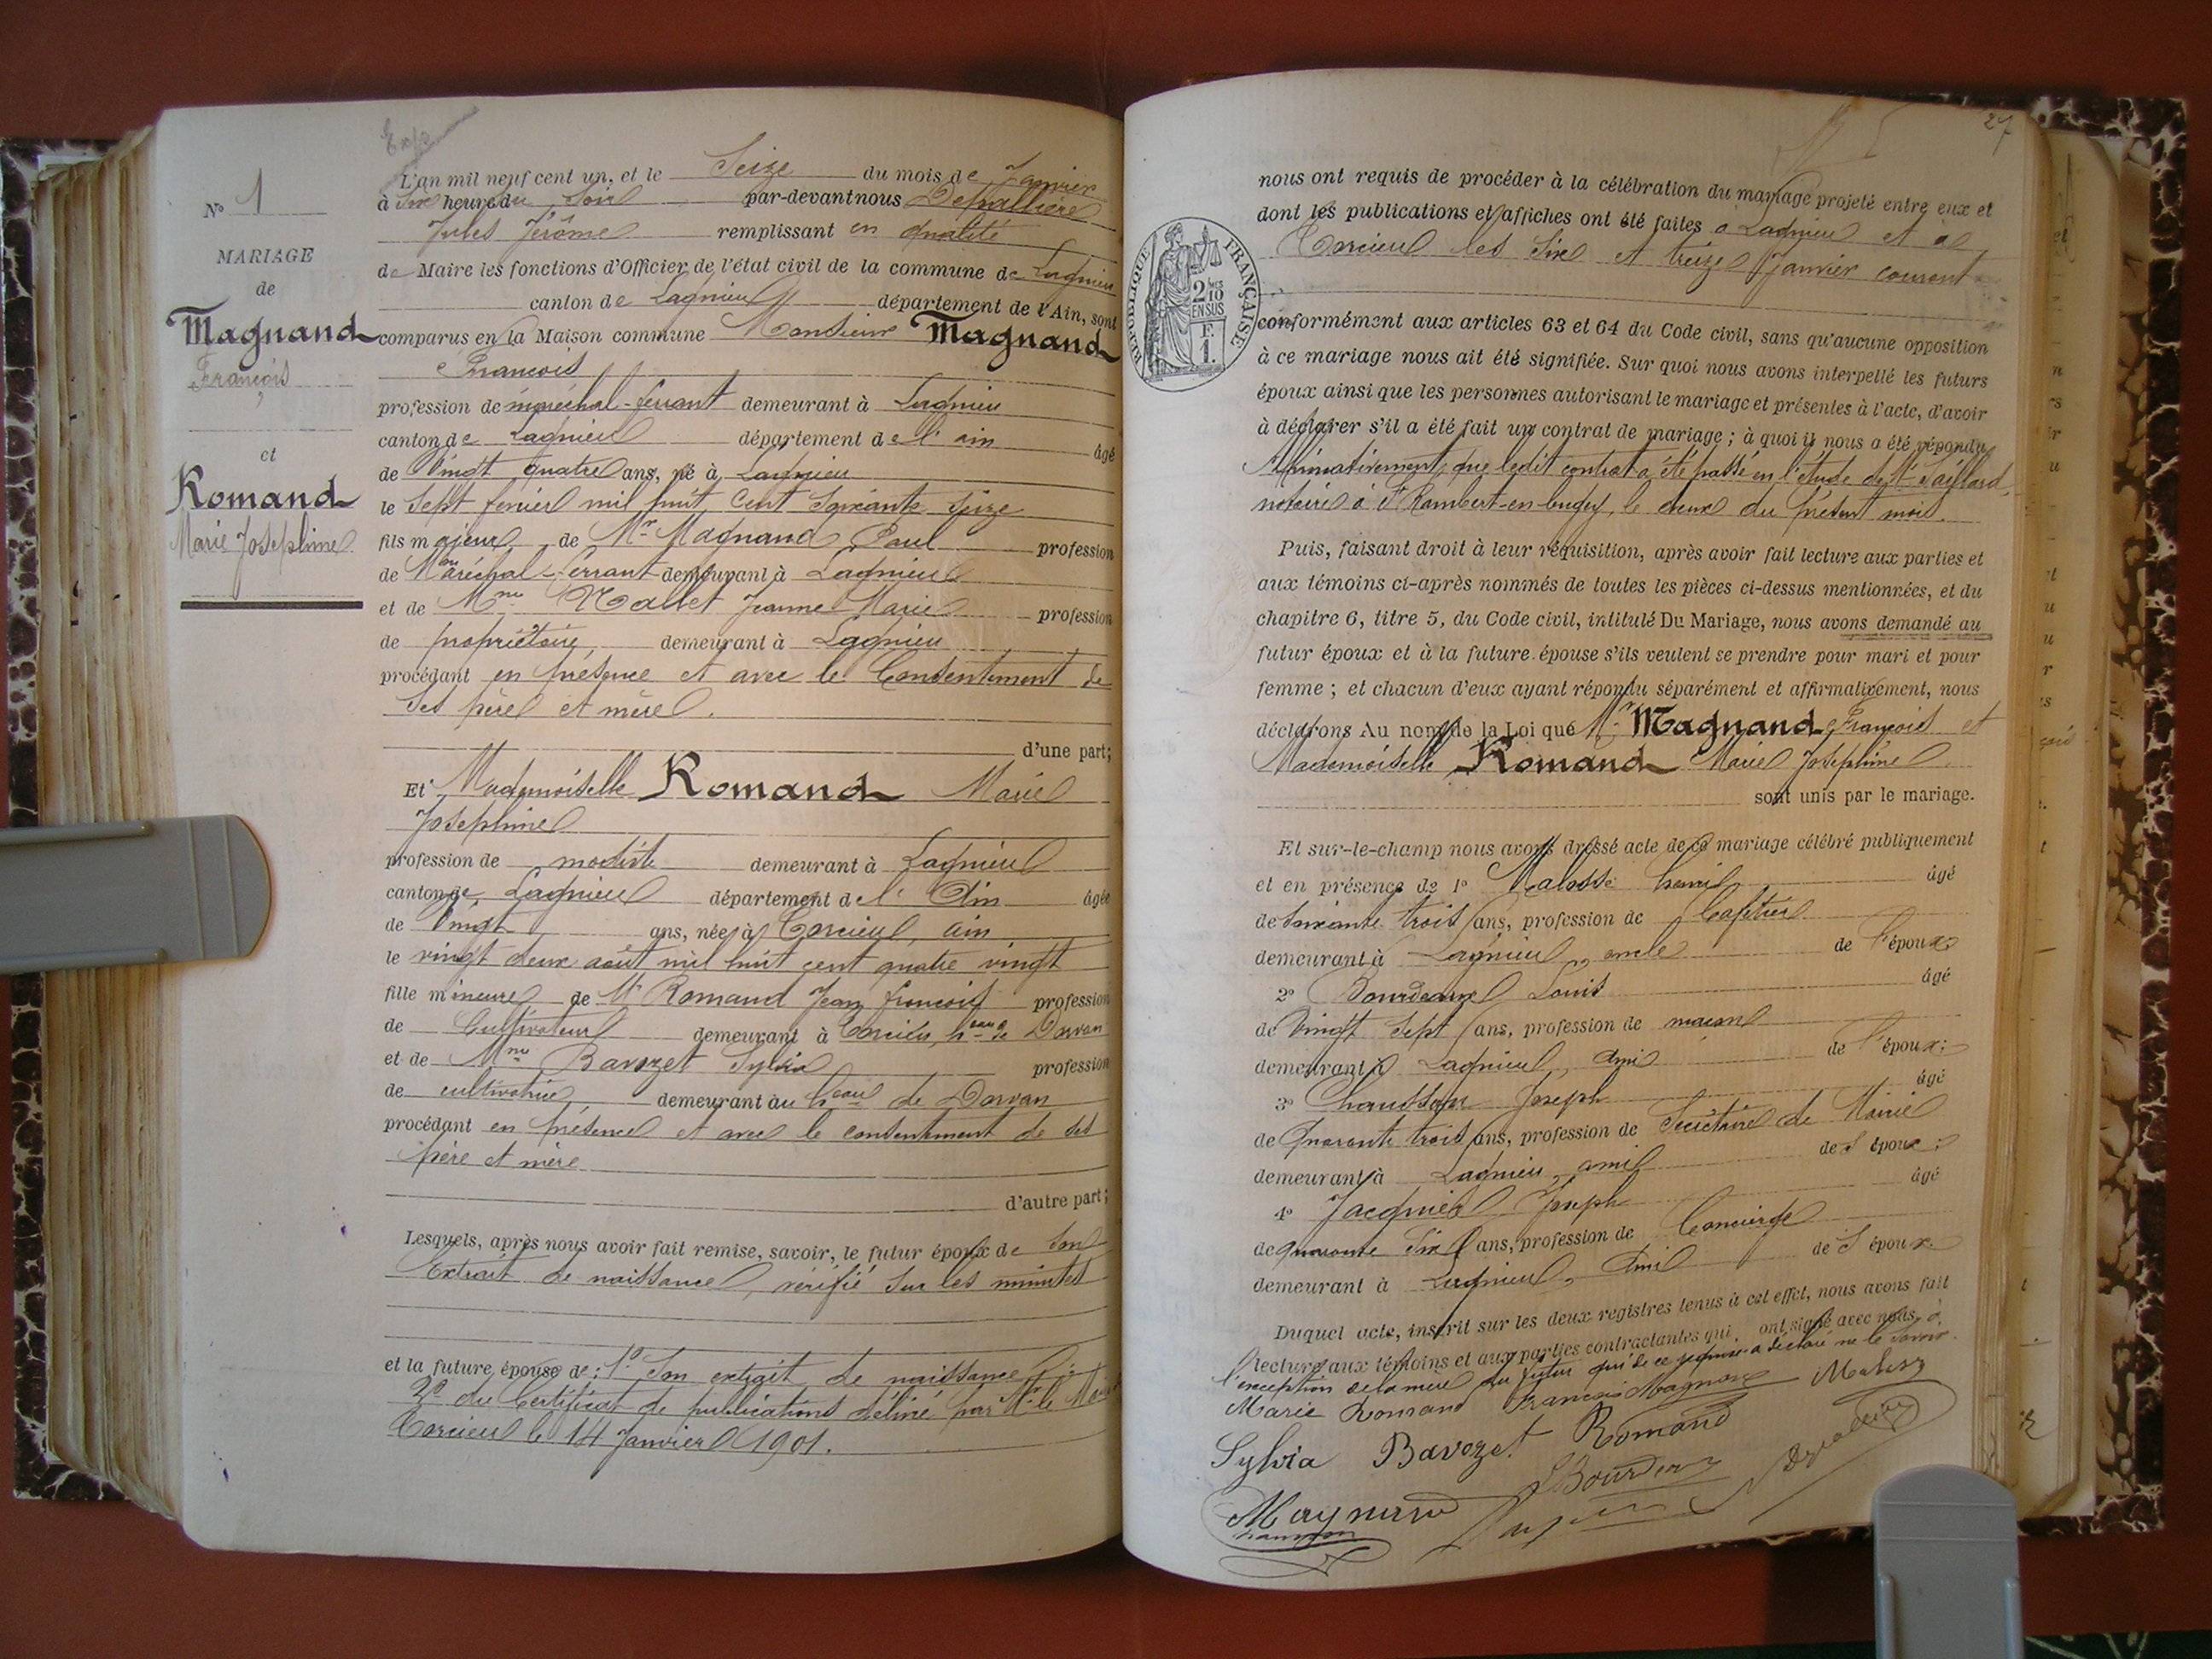 Exp
N° 1
MARIAGE
de
Magnand
François
et
Romand
Marie Joséphine
L'an mil neuf cent un, et le Seize du mois de Janvier
à Six heure du Soir par-devant nous
Jules Jérôme remplissant en qualité
de Maire les fonctions d'Officier de l'état civil de la commune de Lagnieu
canton de Lagnieu département de l'Ain, sont
comparus en la Maison commune Monsieur Magnand
François
profession de maréchal-ferrant demeurant à Lagnieu
canton de Lagnieu département de l'ain âgé
de Vingt quatre ans, né à Lagnieu
le Sept fevrier mil huit cent soixante seize
fils majeur de Mr Magnand Paul profession
de Maréchal-ferrant demeurant à Lagnieu
et de Mme Jeanne Marie profession
de propriétaire, demeurant à Lagnieu
procédant en présence et avec le Consentement de
Ses père et mère.
d'une part;
Et Mademoiselle Romand Marie
Joséphine
profession de modiste demeurant à Lagnieu
canton de Lagnieu département de l'Ain âgée
de Vingt ans, née à Torcieu, ain
le vingt deux août mil huit cent quatre vingt
fille mineure de Mr Romand Jean françois profession
de Cultivateur demeurant à Torcieu, heau de Dorvan
et de Mme Bavozet Sylvia profession
de cultivatrice, demeurant au heau de Dorvan
procédant en présence et avec le consentement de ses
père et mère
d'autre part;
Lesquels, après nous avoir fait remise, savoir, le futur époux de Son
Extrait de naissance, vérifié sur les minutes
et la future épouse de: 1° Son extrait de naissance
2° du Certificat de publications délivré par Mr le
Torcieu le 14 Janvier 1901.
27
nous ont requis de procéder à la célébration du mariage projeté entre eux et
dont les publications et affiches ont été faites à Lagnieu et à
Torcieu les Six et treize Janvier courant
RÉPUBLIQUE FRANÇAISE
2/10
EN SUS
F.
1.
conformément aux articles 63 et 64 du Code civil, sans qu'aucune opposition
à ce mariage nous ait été signifiée. Sur quoi nous avons interpellé les futurs
époux ainsi que les personnes autorisant le mariage et présentes à l'acte, d'avoir
à déclarer s'il a été fait un contrat de mariage; à quoi il nous a été répondu
Affirmativement, que ledit contrat a été passé en l'étude de Me Saillard,
notaire à St Rambert-en-bugey, le deux du présent mois.
Puis, faisant droit à leur réquisition, après avoir fait lecture aux parties et
aux témoins ci-après nommés de toutes les pièces ci-dessus mentionnées, et du
chapitre 6, titre 5, du Code civil, intitulé Du Mariage, nous avons demandé au
futur époux et à la future épouse s'ils veulent se prendre pour mari et pour
femme; et chacun d'eux ayant répondu séparément et affirmativement, nous
déclarons Au nom de la Loi que Mr Magnand François et
Mademoiselle Romand Marie Joséphine
sont unis par le mariage.
Et sur-le-champ nous avons dressé acte de ce mariage célébré publiquement
et en présence de 1° âgé
de Soixante trois ans, profession de Cafetier
demeurant à Lagnieu, oncle de l'époux;
2° Bourdeaux Louis âgé
de Vingt Sept ans, profession de maçon
demeurant à Lagnieu, Ami de l'époux;
3° Joseph âgé
de Quarante trois ans, profession de Secrétaire de Mairie
demeurant à Lagnieu, ami de l'époux;
4° Jacquier Joseph âgé
de quarante Six ans, profession de Concierge
demeurant à Lagnieu, Ami de l'époux.
Duquel acte, inscrit sur les deux registres tenus à cet effet, nous avons fait
lecture aux témoins et aux parties contractantes qui ont signé avec nous, à
l'exception de la mère du futur qui de ce requise a déclaré ne le savoir.
Marie Romand François Magnand
Sylvia Bavozet Romand
Magnand